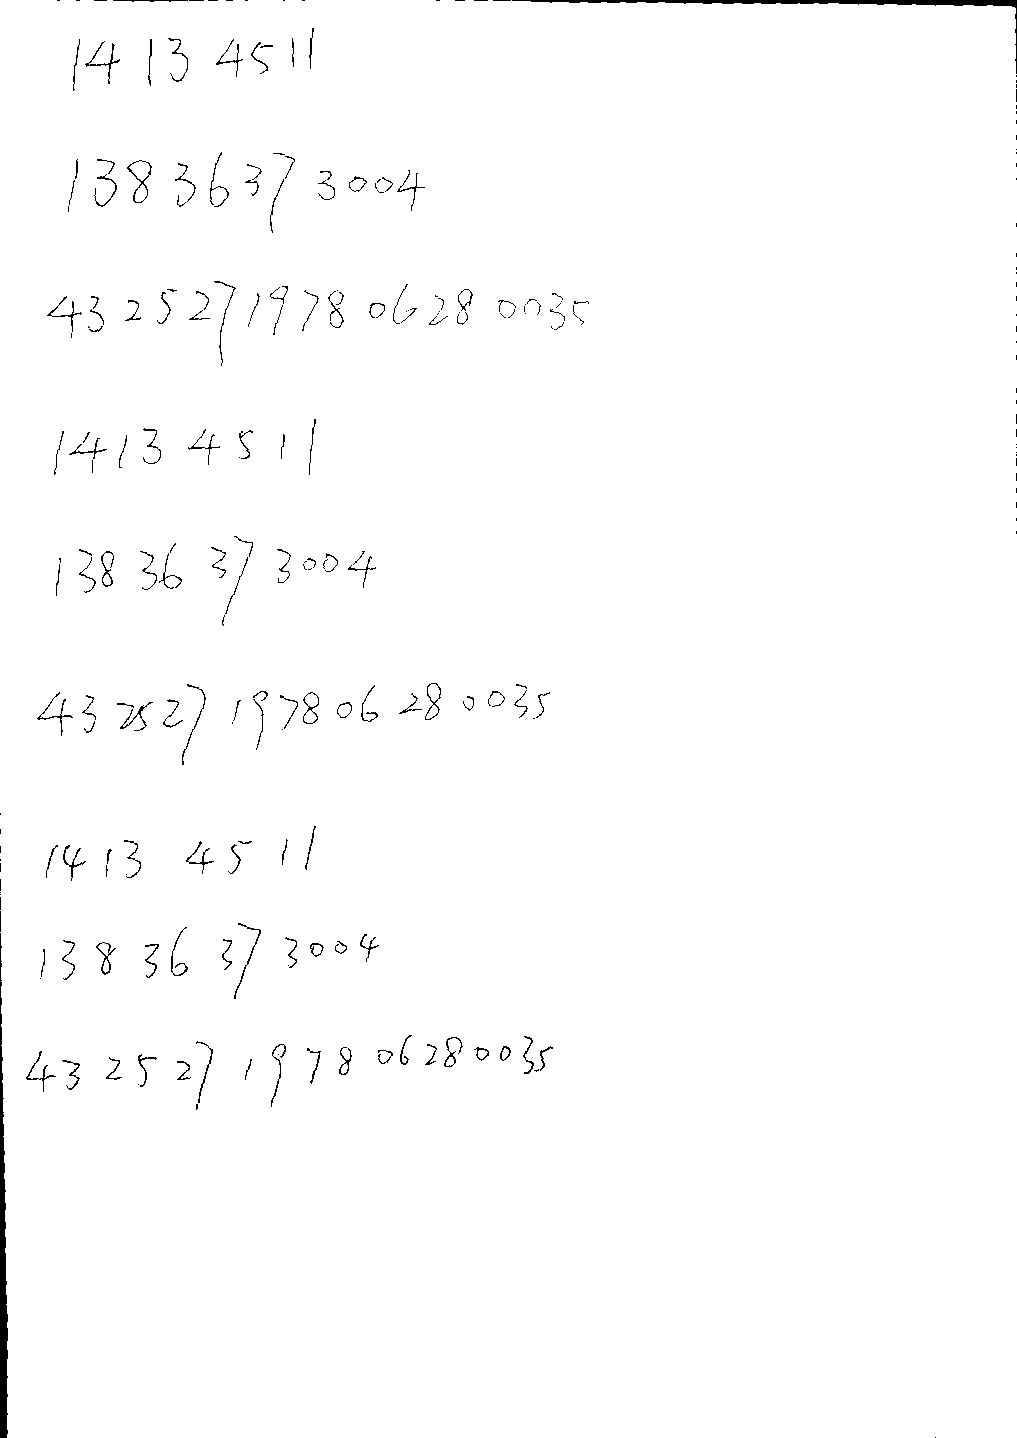 14 13 4511
138 3637 3004
43 2527 1978 0628 0035
1413 4511
138 36 37 3004
43 2527 1978 06 28 0035
1413 45 11
138 36 37 3004
43 2527 1978 06280035